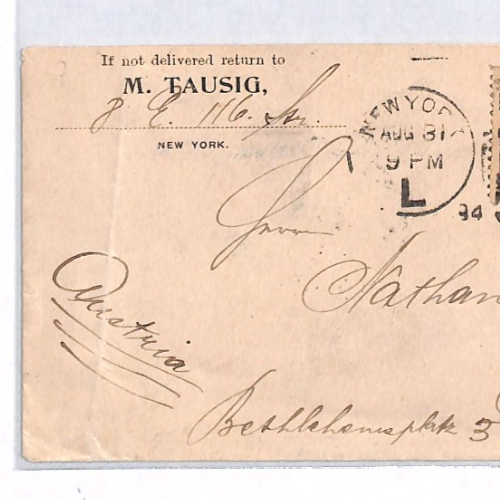 If not delivered return to
M. TAUSIG,
8 E. 116. Str.
NEW YORK.
NEW YORK
AUG 31
9 PM
L
94
Herrn
Nathan
Austria
Bethlehemsplatz 3